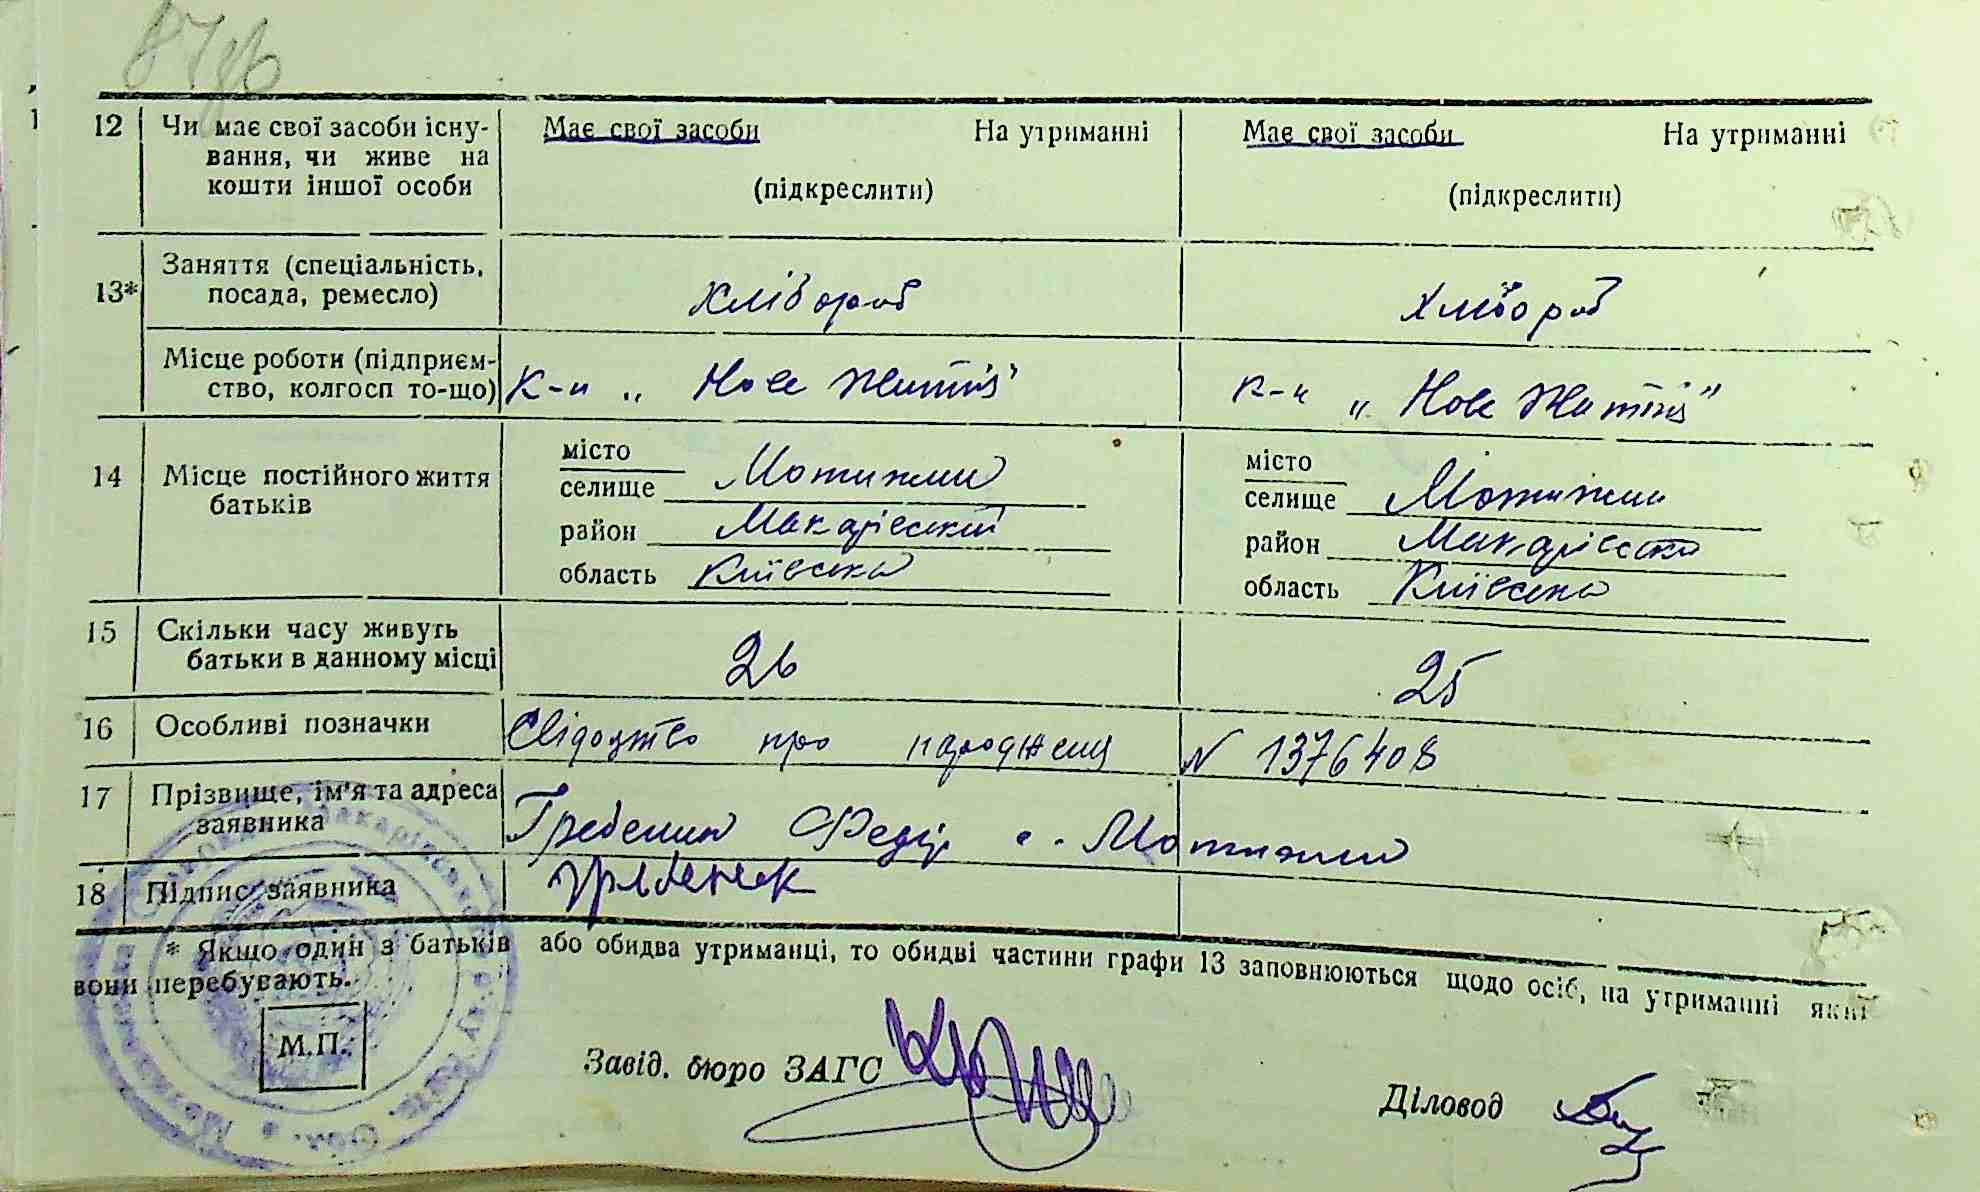 87зв
12 Чи має свої засоби існу-
вання, чи живе на
кошти іншої особи
Має свої засоби На утриманні
(підкреслити)
Має свої засоби На утриманні
(підкреслити)
13* Заняття (спеціальність,
посада, ремесло)
Хлібороб
Хлібороб
Місце роботи (підприєм-
ство, колгосп то-що)
К-п „Нове Життя"
К-п „Нове Життя"
14 Місце постійного життя
батьків
місто
селище Мотижин
район Макарівский
область Київська
місто
селище Мотижин
район Макарівско
область Київська
15 Скільки часу живуть
батьки в данному місці
26
25
16 Особливі позначки
Свідоцтво про народженя N 1376408
17 Прізвище, ім'я та адреса
заявника
Гребеник Федір с. Мотижин
18 Підпис заявника
Гребеник
* Якщо один з батьків або обидва утриманці, то обидві частини графи 13 заповнюються щодо осіб, на утриманні яких
вони перебувають.
М.П.
Завід. бюро ЗАГС
Діловод